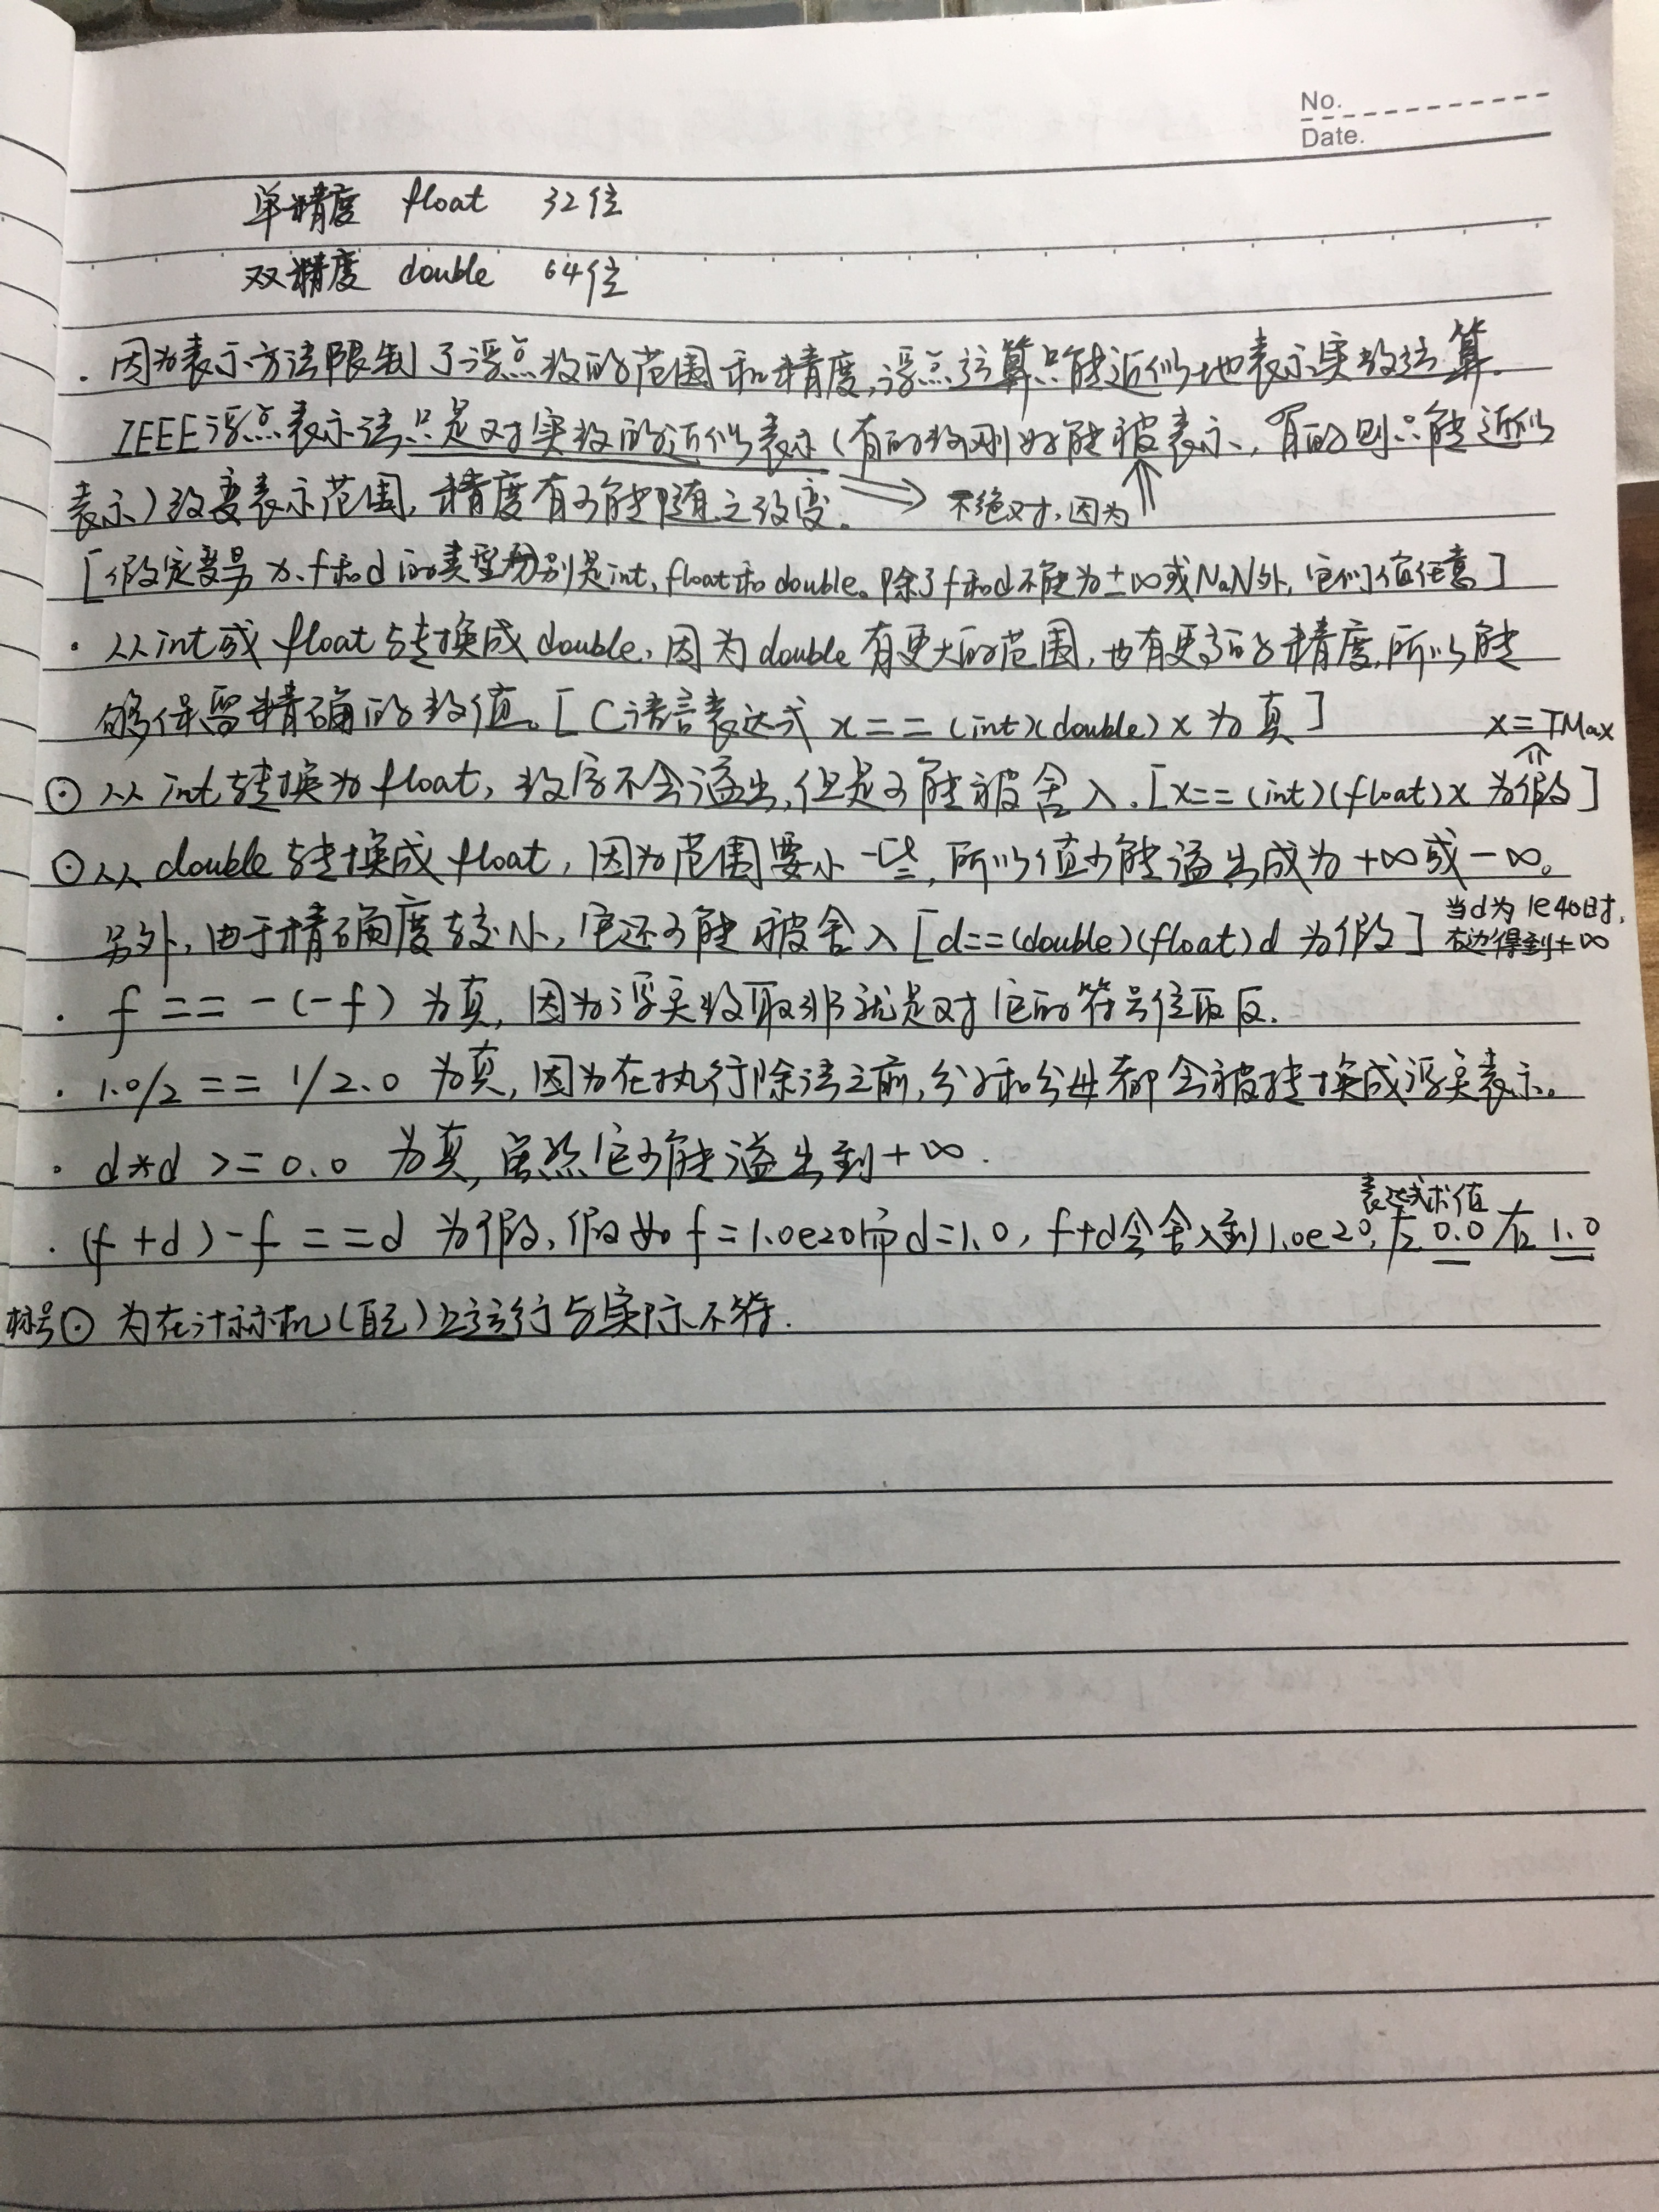 No.
Date.
单精度 float 32位
双精度 double 64位
· 因为表示方法限制了浮点数的范围和精度,浮点运算只能近似地表示实数运算.
IEEE浮点表示法只是对实数的近似表示(有的数刚好能被表示,有的则只能近似
表示)改变表示范围,精度有可能随之改变。 ⇒ 不绝对,因为⇑
[假定变量 x、f和d的类型分别是int,float和double。除了f和d不能为±∞或NaN外,它们值任意]
· 从int或float转换成double,因为double有更大的范围,也有更高的精度,所以能
够保留精确的数值。[C语言表达式 x==(int)(double)x 为真]
x=TMax
⊙ 从int转换为float,数字不会溢出,但是可能被舍入.[x==(int)(float)x 为假]
⊙ 从double转换成float,因为范围要小一些,所以值可能溢出成为+∞或-∞。
另外,由于精确度较小,它还可能被舍入[d==(double)(float)d 为假] 当d为1e40时,
右边得到+∞
· f == -(-f) 为真,因为浮点数取非就是对它的符号位取反.
· 1.0/2 == 1/2.0 为真,因为在执行除法之前,分子和分母都会被转换成浮点表示。
· d*d >= 0.0 为真,虽然它可能溢出到+∞.
表达式求值
· (f+d)-f==d 为假,假如f=1.0e20而d=1.0,f+d会舍入到1.0e20,左0.0右1.0
标号⊙ 为在计算机(自己)上运行与实际不符.